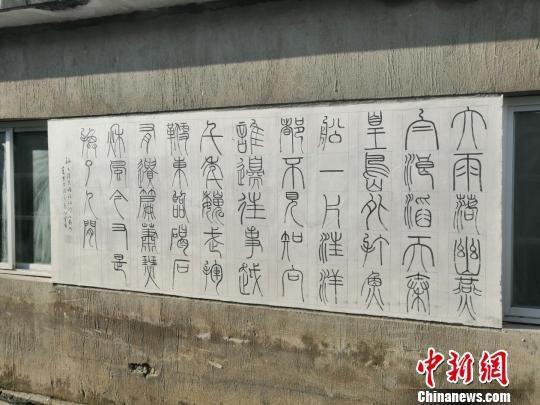 大雨落幽燕
白浪滔天秦
皇島外打魚
船一片汪洋
都不見知向
誰邊往事越
千年魏武揮
鞭東臨碣石
有遺篇蕭瑟
秋風今又是
換了人間
中新网
Chinanews.com